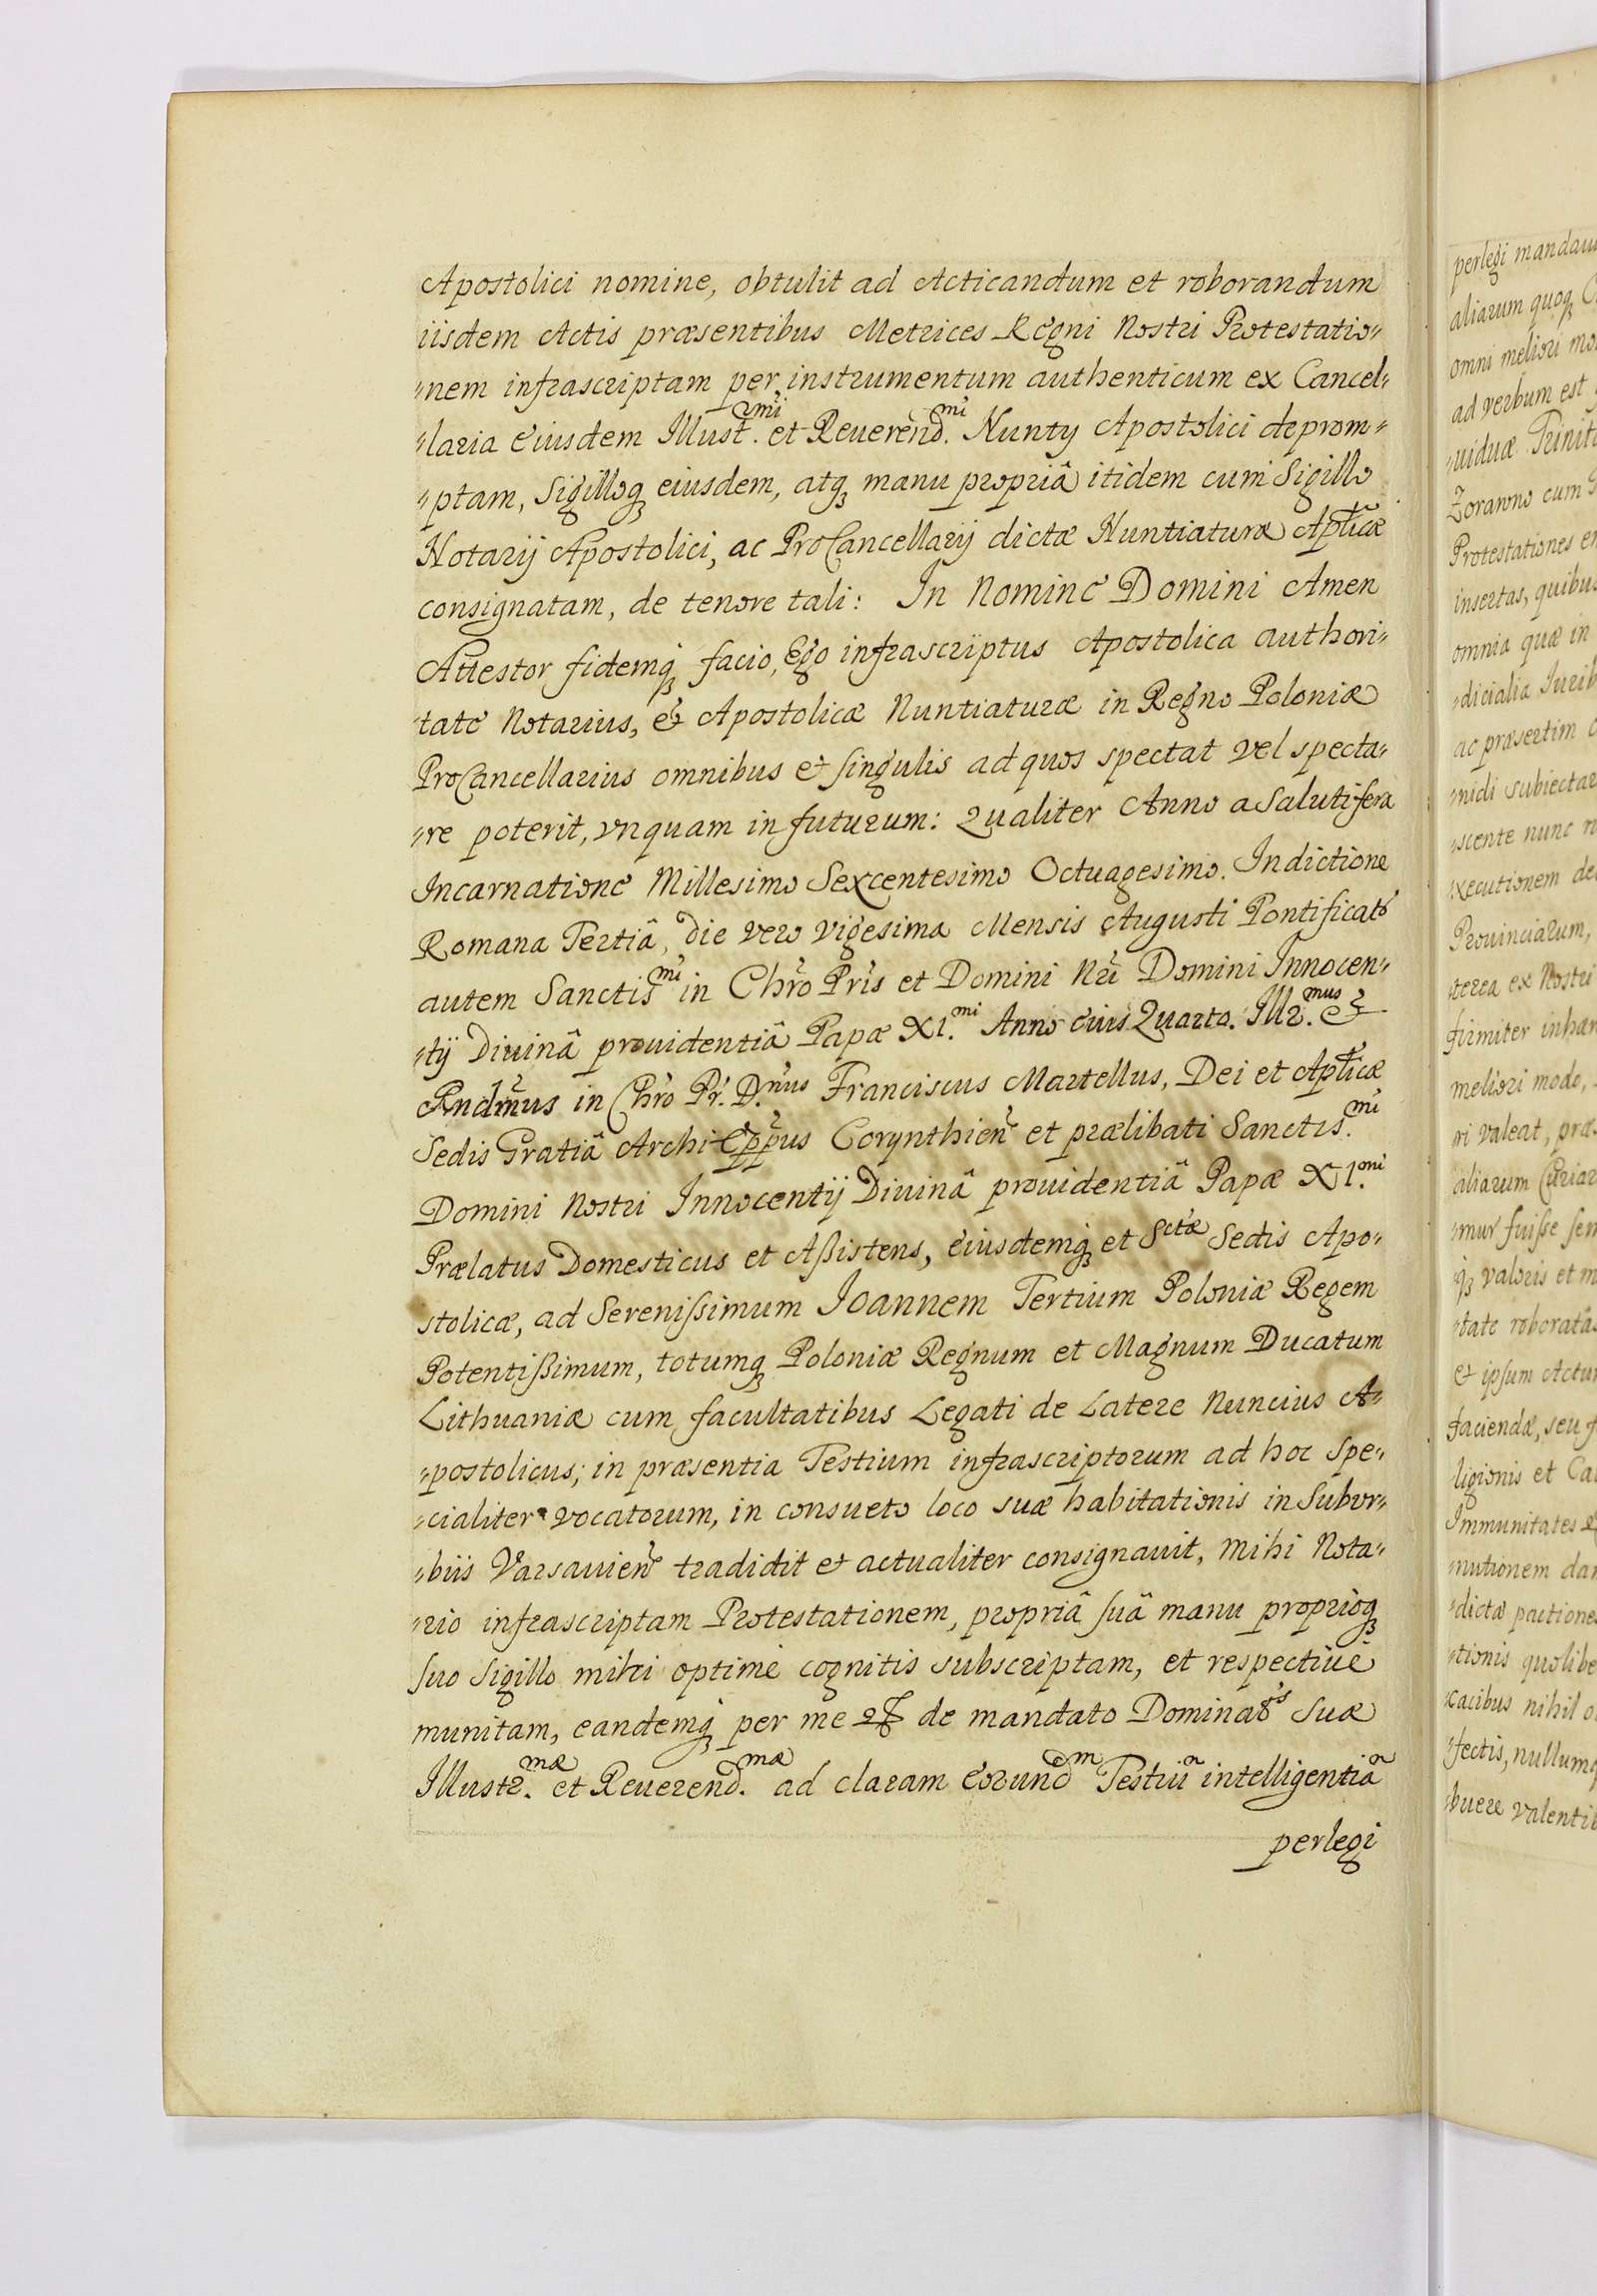 Apostolici nomine, obtulit ad Acticandum et roborandum
iisdem Actis præsentibus Metrices Regni Nostri Protestatio„
„nem infrascriptam per instrumentum authenticum ex Cancel„
„laria eiusdem Illust.mi et Reuerend.mi Nuntÿ Apostolici deprom„
„ptam, Sigilloq̨ eiusdem, atq̨ manu propriâ itidem cum Sigillo
Notarij Apostolici, ac ProCancellarij dictæ Nuntiaturæ Aplicæ
consignatam, de tenore tali: In Nomine Domini Amen
Attestor fidemq̨ facio, Ego infrascriptus Apostolica authori„
tate Notarius, & Apostolicæ Nuntiaturæ in Regno Poloniæ
ProCancellarius omnibus et singulis ad quos spectat vel specta„
„re poterit, vnquam in futurum: Qualiter Anno a Salutifera
Incarnatione Millesimo Sexcentesimo Octuagesimo. Indictione
Romana Tertiâ, die vero vigesima Mensis Augusti Pontificatus
autem Sanctis.mi in Chro Pris et Domini Nri Domini Innocen„
„tij Diuinâ prouidentiâ Papæ XI.mi Anno eius Quarto. Illr.mus &
Rndmus in Chro Pr. D.nus Franciscus Martellus, Dei et Aplicæ
Sedis Gratiâ ArchiEppus Corynthien et prælibati Sanctis.mi
Domini Nostri Innocentij Diuinâ prouidentiâ Papæ XI.mi
Prælatus Domesticus et Aßistens, eiusdemq̨ et Sctæ Sedis Apo„
stolicæ, ad Serenissimum Joannem Tertium Poloniæ Regem
Potentißimum, totumq̨ Poloniæ Regnum et Magnum Ducatum
Lithuaniæ cum facultatibus Legati de Latere Nuncius A„
„postolicus; in præsentia Testium infrascriptorum ad hoc spe„
„cialiter vocatorum, in consueto loco suæ habitationis in Subur„
„biis Varsauien tradidit et actualiter consignauit, mihi Nota„
„rio infrascriptam Protestationem, propriâ suâ manu proprioq̨
suo Sigillo mihi optimè cognitis subscriptam, et respectiuè
munitam, eandemq̨ per me de mandato Dominaonis Suæ
Illustr.mæ et Reuerend.mæ ad claram eorundm Testiũ intelligentiã
perlegi
perlegi mandaui
aliarum quoq̨
omni meliori mo
ad verbum est
„uiduæ Trinit
Zoranno cum
Protestationes
insertas, quibus
omnia quæ in
„dicialia Iurib
ac præsertim
„nidi subiectar
„scente nunc
„xecutionem de
Prouinciarum,
„terea ex Nostri
firmiter inhær
meliori modo,
ri valeat, præs
aliarum Curiar
„mur fuisse sem
q̨ valoris et m
„tate roboratas
& ipsum Actu
faciendæ, seu f
ligionis et Ca
Immunitates
„nutionem dar
„dictæ pactione
„tionis quolibe
„cacibus nihil o
„fectis, nullumq̨
„buere valentib